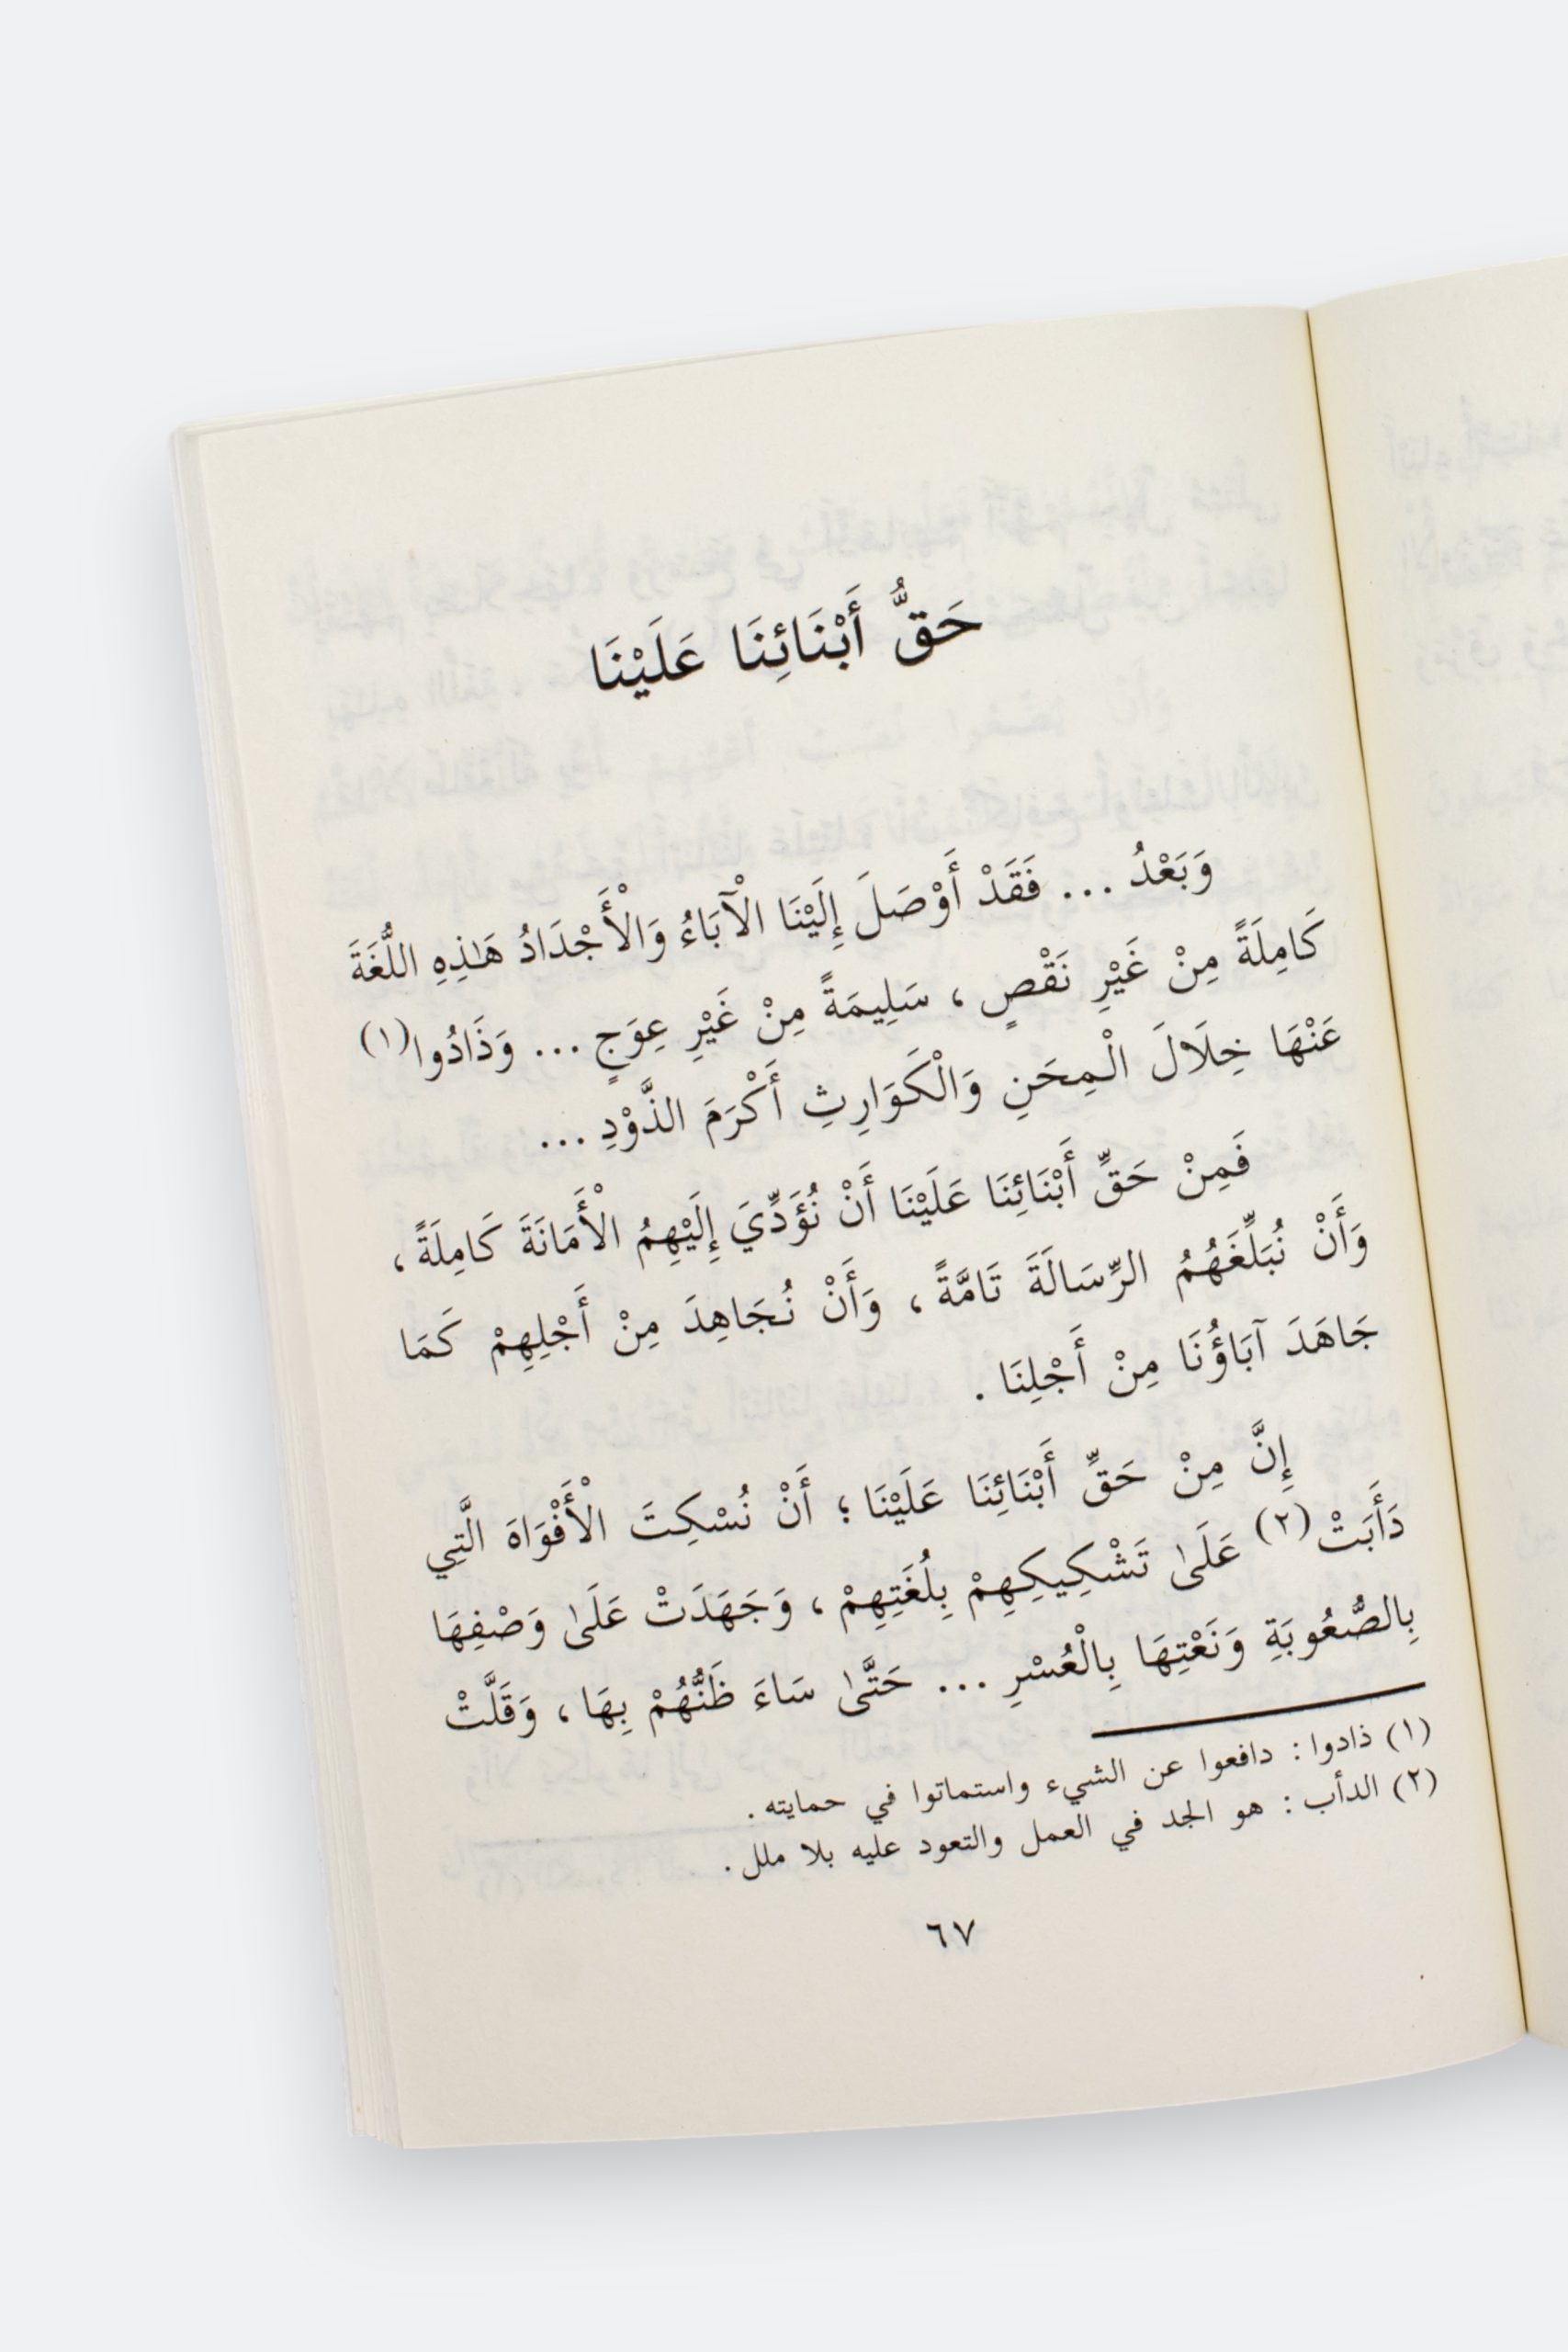 حَقُّ أَبْنَائِنَا عَلَيْنَا
وَبَعْدُ ... فَقَدْ أَوْصَلَ إِلَيْنَا الْآبَاءُ وَالْأَجْدَادُ هَـٰذِهِ اللُّغَةَ
كَامِلَةً مِنْ غَيْرِ نَقْصٍ ، سَلِيمَةً مِنْ غَيْرِ عِوَجٍ ... وَذَادُوا(١)
عَنْهَا خِلَالَ الْمِحَنِ وَالْكَوَارِثِ أَكْرَمَ الذَّوْدِ ...
فَمِنْ حَقِّ أَبْنَائِنَا عَلَيْنَا أَنْ نُؤَدِّيَ إِلَيْهِمُ الْأَمَانَةَ كَامِلَةً ،
وَأَنْ نُبَلِّغَهُمُ الرِّسَالَةَ تَامَّةً ، وَأَنْ نُجَاهِدَ مِنْ أَجْلِهِمْ كَمَا
جَاهَدَ آبَاؤُنَا مِنْ أَجْلِنَا .
إِنَّ مِنْ حَقِّ أَبْنَائِنَا عَلَيْنَا ؛ أَنْ نُسْكِتَ الْأَفْوَاهَ الَّتِي
دَأَبَتْ(٢) عَلَىٰ تَشْكِيكِهِمْ بِلُغَتِهِمْ ، وَجَهَدَتْ عَلَىٰ وَصْفِهَا
بِالصُّعُوبَةِ وَنَعْتِهَا بِالْعُسْرِ ... حَتَّىٰ سَاءَ ظَنُّهُمْ بِهَا ، وَقَلَّتْ
(١) ذادوا : دافعوا عن الشيء واستماتوا في حمايته .
(٢) الدأب : هو الجد في العمل والتعود عليه بلا ملل .
٦٧